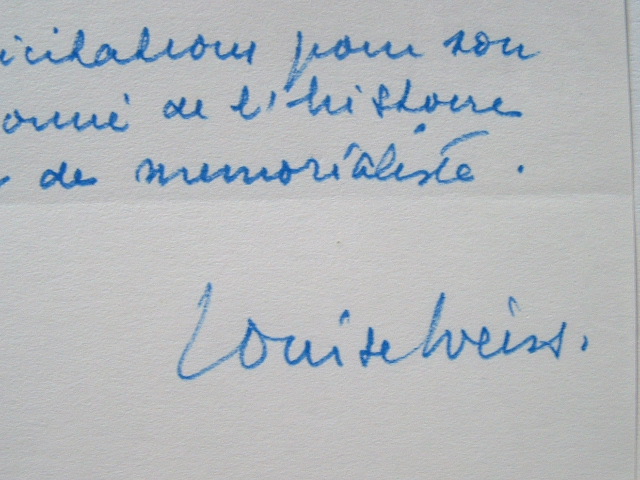 icitations pour son
onné de l'histoire
de memorialiste.
Louise Weiss.